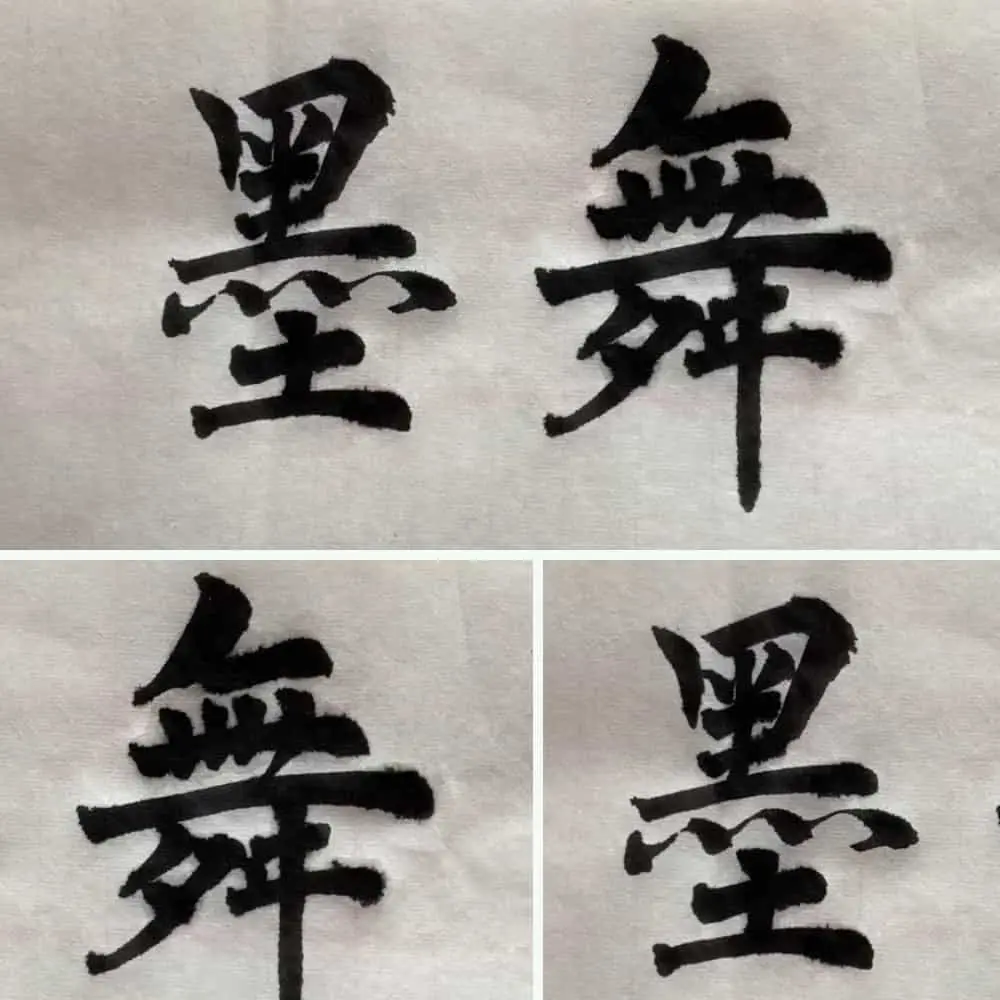 墨舞
舞
墨